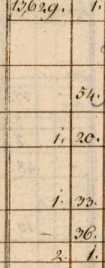 13,629. 1.
54.
1. 20.
1. 33.
– 36.
2. 1.